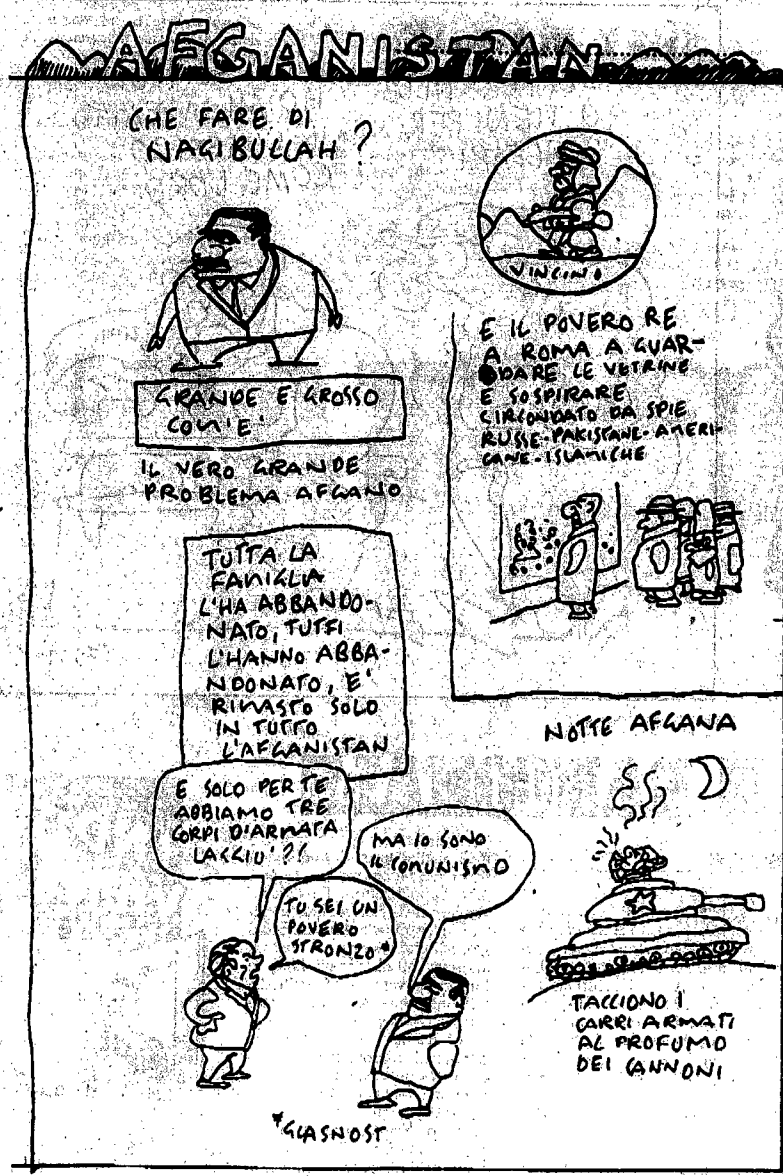 AFGANISTAN
CHE FARE DI
NAGIBULLAH?
GRANDE E GROSSO
COM'E'
IL VERO GRANDE
PROBLEMA AFGANO
TUTTA LA
FAMIGLIA
L'HA ABBANDO-
NATO, TUTTI
L'HANNO ABBA-
NDONATO, E'
RIMASTO SOLO
IN TUTTO
L'AFGANISTAN
E SOLO PER TE
ABBIAMO TRE
CORPI D'ARMATA
LAGGIU'?!
TU SEI UN
POVERO
STRONZO*
MA IO SONO
IL COMUNISMO
*GLASNOST
VINCINO
E IL POVERO RE
A ROMA A GUAR-
DARE LE VETRINE
E SOSPIRARE
CIRCONDATO DA SPIE
RUSSE-PAKISTANE-AMERI-
CANE-ISLAMICHE
NOTTE AFGANA
TACCIONO I
CARRI ARMATI
AL PROFUMO
DEI CANNONI